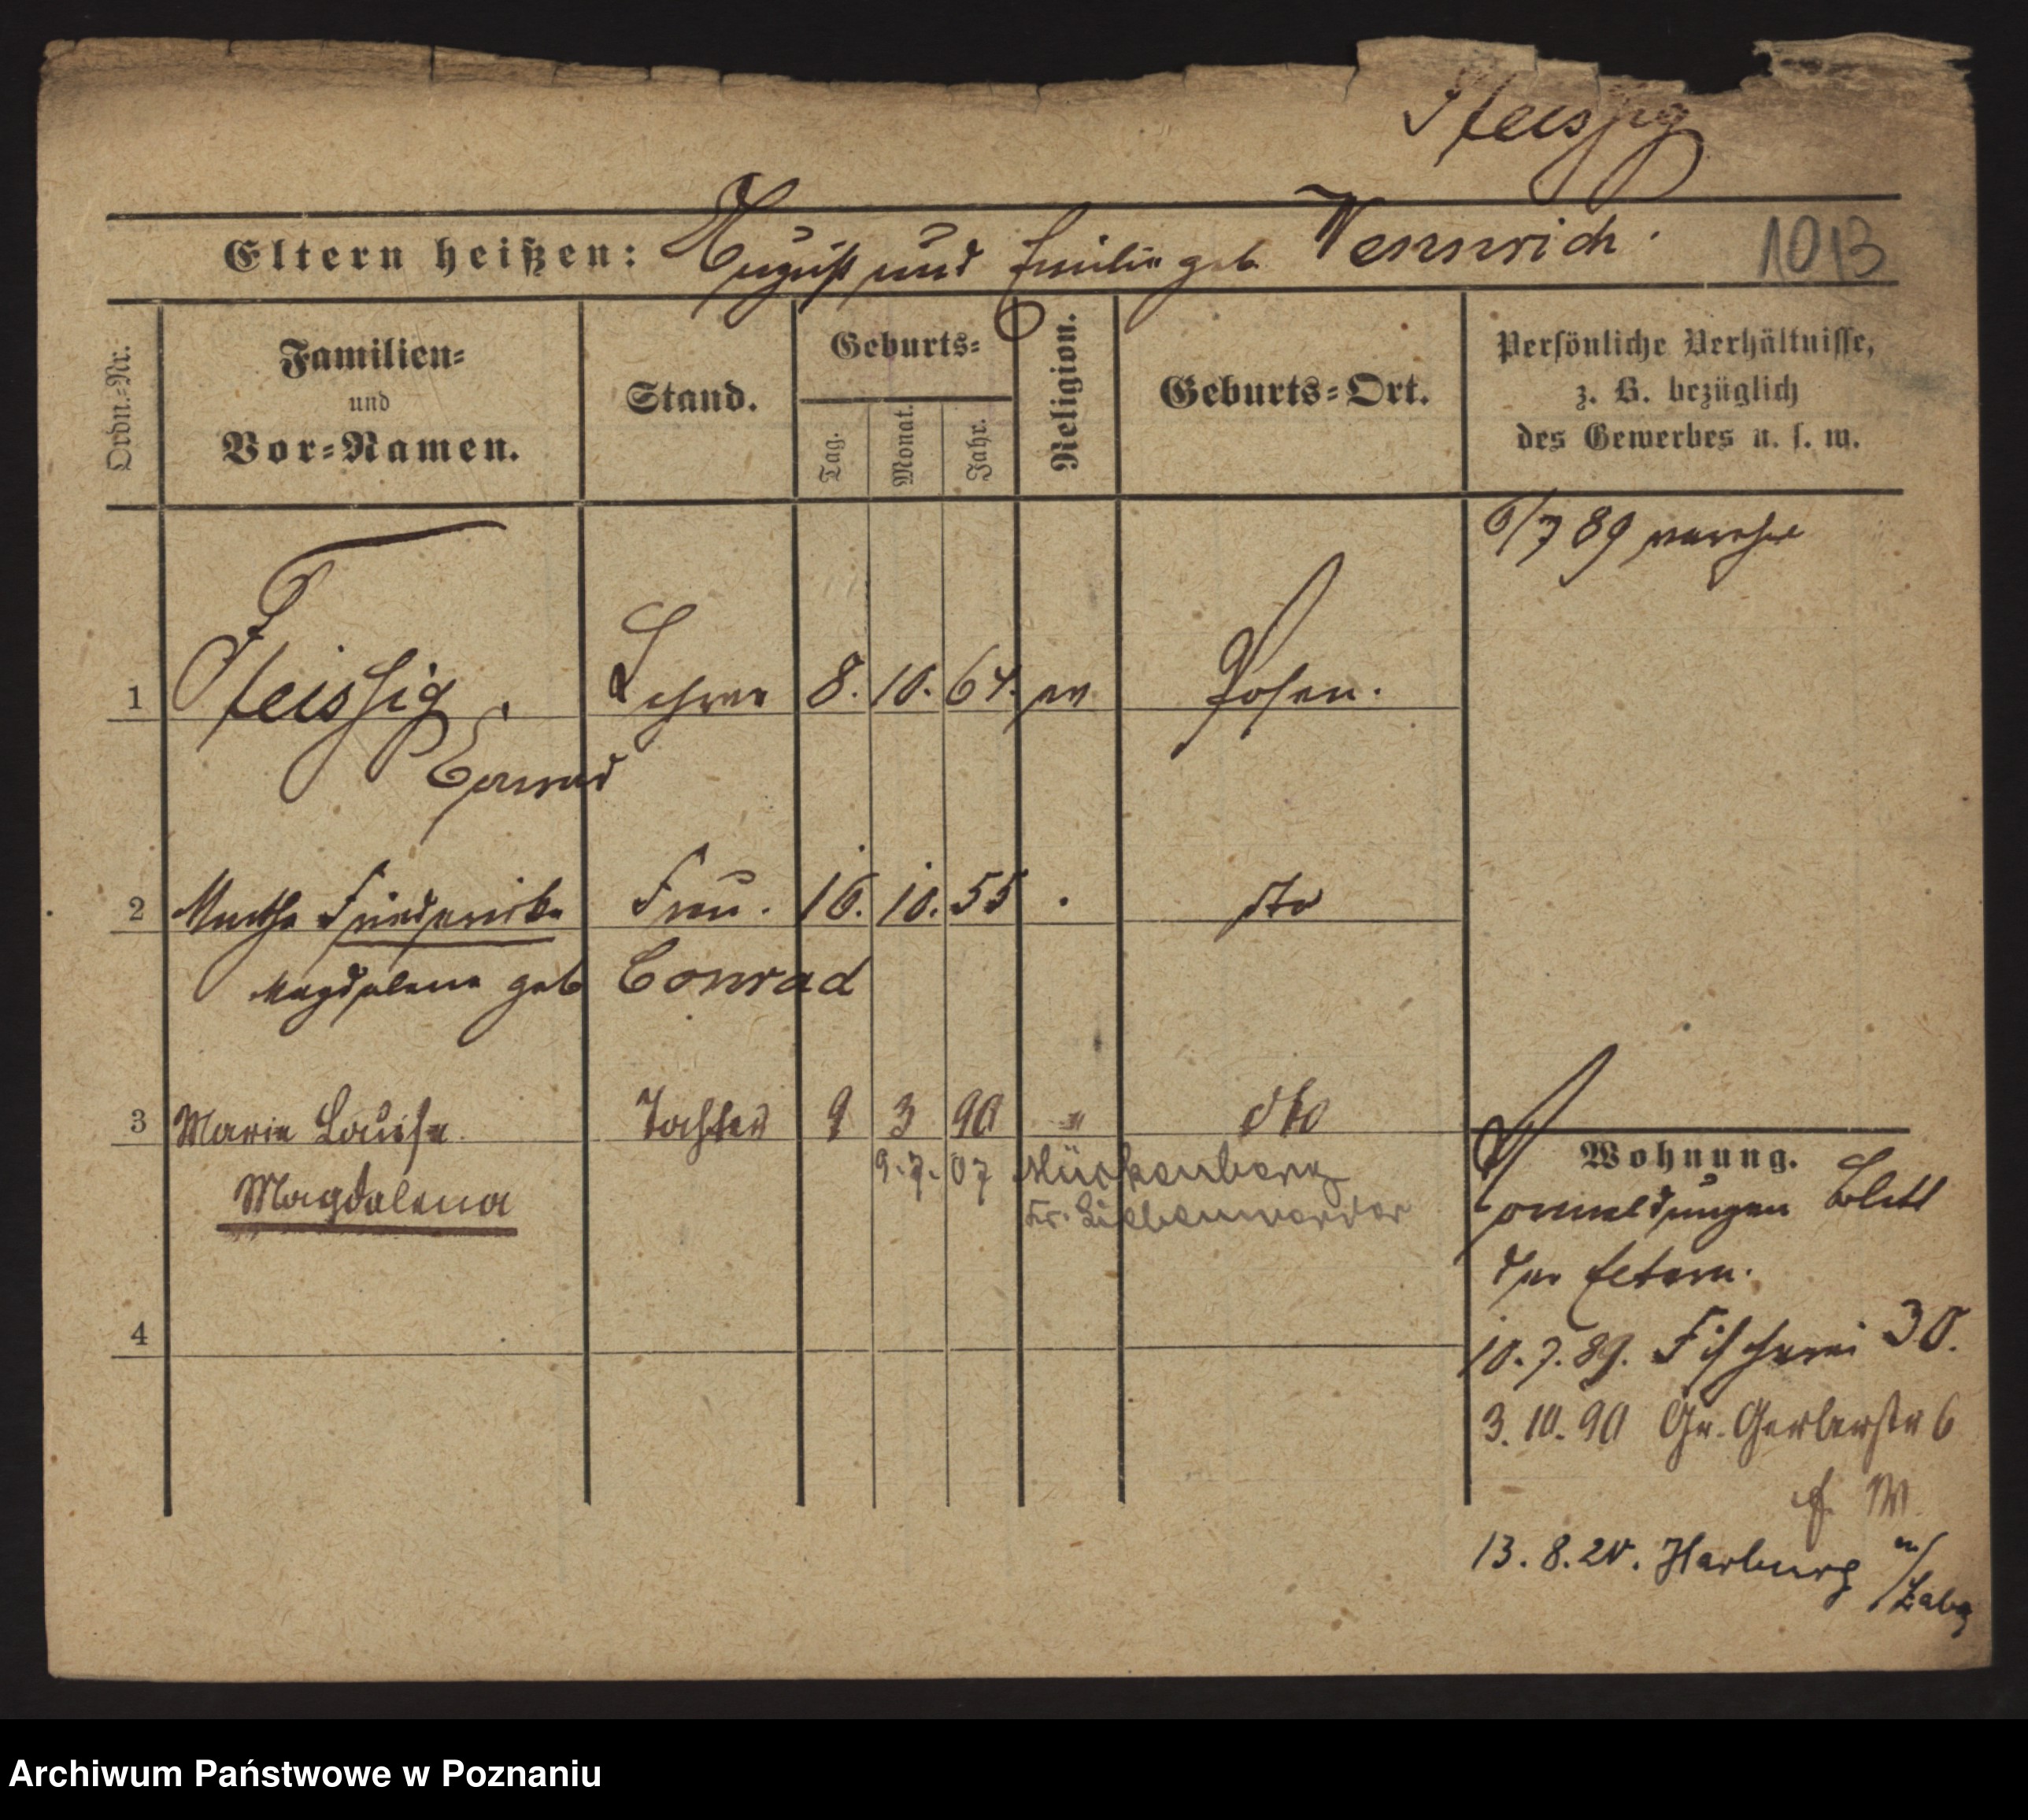 Fleissig
Eltern heißen: August und Emilie geb. Wennrich.
1013
Ordn.=Nr.
Familien=
und
Vor=Namen.
Stand.
Geburts=
Tag.
Monat.
Jahr.
Religion.
Geburts=Ort.
Persönliche Verhältnisse,
z. B. bezüglich
des Gewerbes u. s. w.
6/7 89
1 Fleissig, Lehrer 8. 10. 64. ev Posen.
Conrad
2 Martha Friederike Frau. 16. 10. 55 dto
Magdalena geb Conrad
3 Marie Louise Tochter 9 3 90 " dto
9.7.07 Mückenberg
Kr. Liebenwerda
Magdalena
4
Wohnung.
Vormeldungen Blatt
der Eltern.
10.7.89. Fischerei 30.
3.10.90 Gr. Gerberstr 6
13.8.20. Harburg